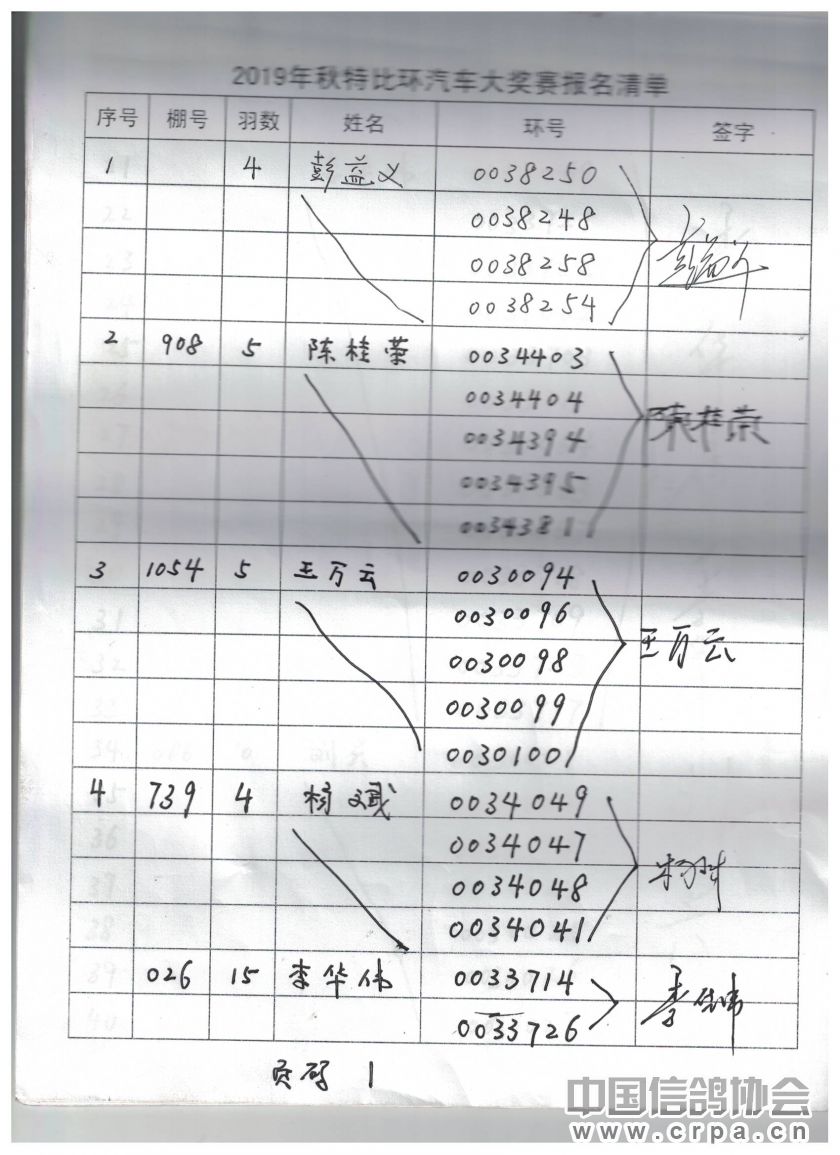 2019年秋特比环汽车大奖赛报名清单
序号 棚号 羽数 姓名 环号 签字
1 4 彭益义 0038250
0038248
0038258
0038254
2 908 5 陈桂荣 0034403
0034404
陈桂荣
0034394
0034395
0034381
3 1054 5 王万云 0030094
0030096
王万云
0030098
0030099
0030100
4 739 4 杨斌 0034049
0034047
0034048
0034041
026 15 李华伟 0033714
李华伟
0033726
页码 1
中国信鸽协会
www.crpa.cn